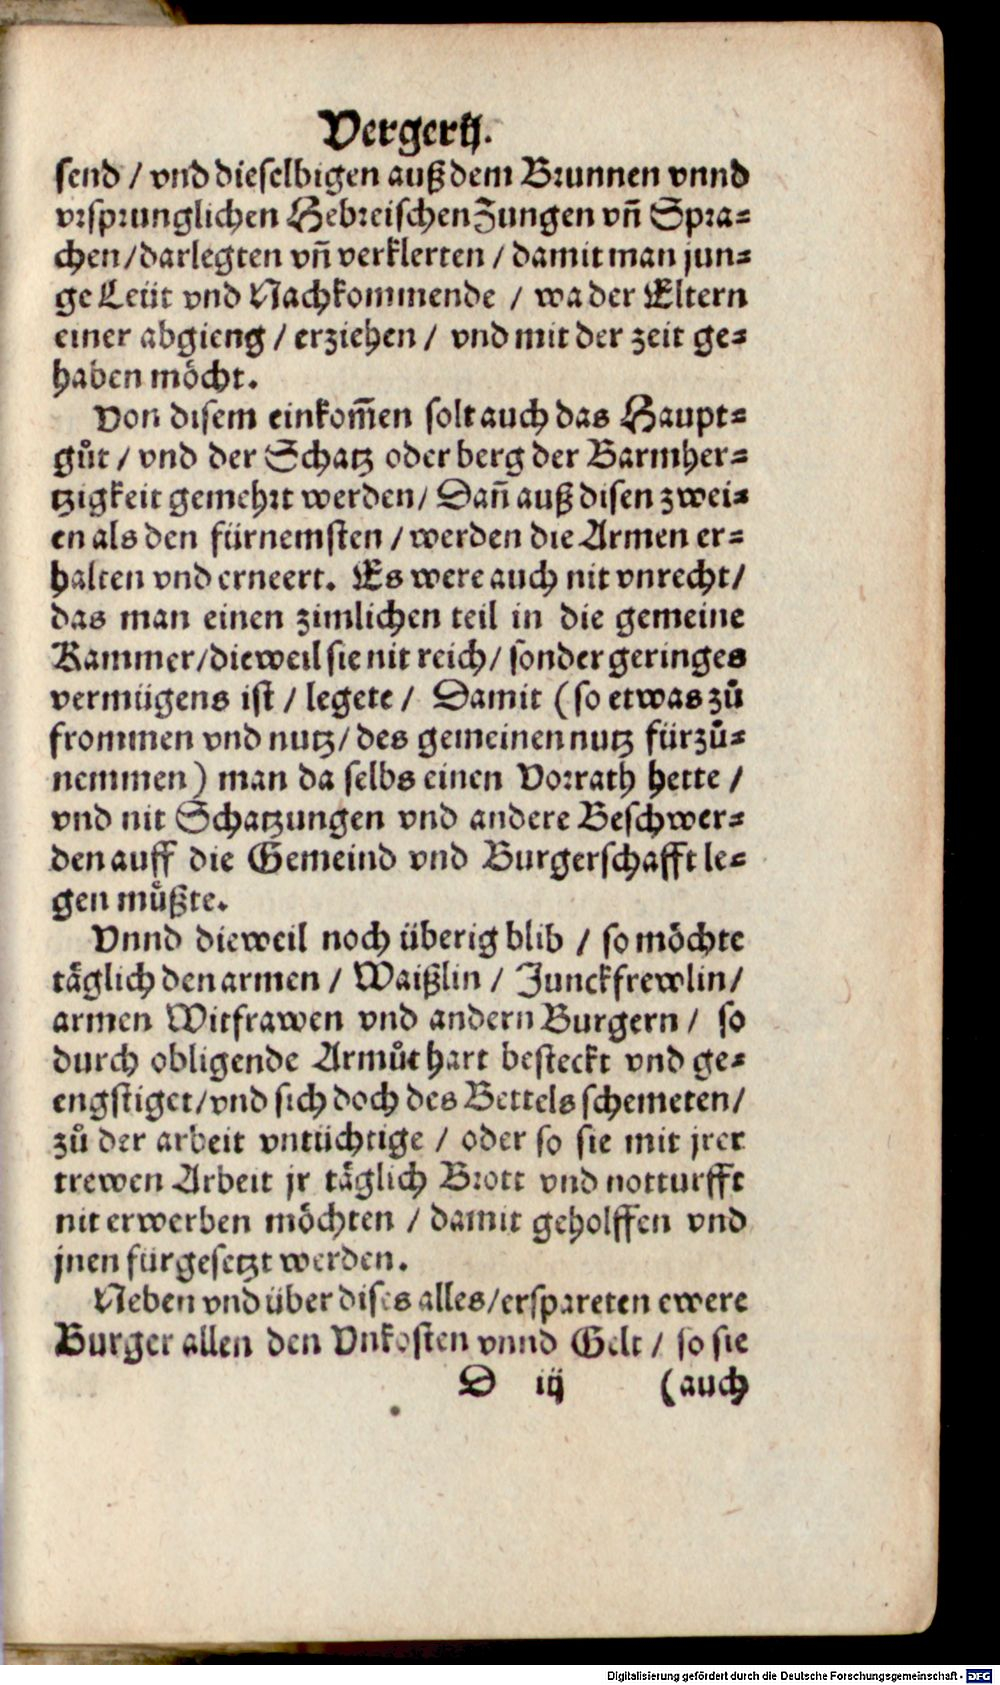 Vergerij.
send / vnd dieselbigen auß dem Brunnen vnnd
vrsprunglichen Hebreischen Zungen vñ Spra⸗
chen/darlegten vñ verklerten / damit man jun⸗
ge Leüt vnd Nachkommende / wa der Eltern
einer abgieng / erziehen / vnd mit der zeit ge⸗
haben möcht.
Von disem einkom̃en solt auch das Haupt⸗
gůt / vnd der Schatz oder berg der Barmher⸗
tzigkeit gemehrt werden/ Dañ auß disen zwei⸗
en als den fürnemsten / werden die Armen er⸗
halten vnd erneert. Es were auch nit vnrecht/
das man einen zimlichen teil in die gemeine
Kammer/dieweil sie nit reich/ sonder geringes
vermügens ist / legete / Damit (so etwas zů
frommen vnd nutz/ des gemeinen nutz fürzů⸗
nemmen) man da selbs einen Vorrath hette /
vnd nit Schatzungen vnd andere Beschwer⸗
den auff die Gemeind vnd Burgerschafft le⸗
gen müßte.
Vnnd dieweil noch überig blib / so möchte
täglich den armen / Waißlin / Junckfrewlin/
armen Witfrawen vnd andern Burgern / so
durch obligende Armůt hart besteckt vnd ge⸗
engstiget/vnd sich doch des Bettels schemeten/
zů der arbeit vntüchtige / oder so sie mit jrer
trewen Arbeit jr täglich Brott vnd notturfft
nit erwerben möchten / damit geholffen vnd
jnen fürgesetzt werden.
Neben vnd über dises alles/erspareten ewere
Burger allen den Vnkosten vnnd Gelt / so sie
D iij (auch
Digitalisierung gefördert durch die Deutsche Forschungsgemeinschaft - DFG